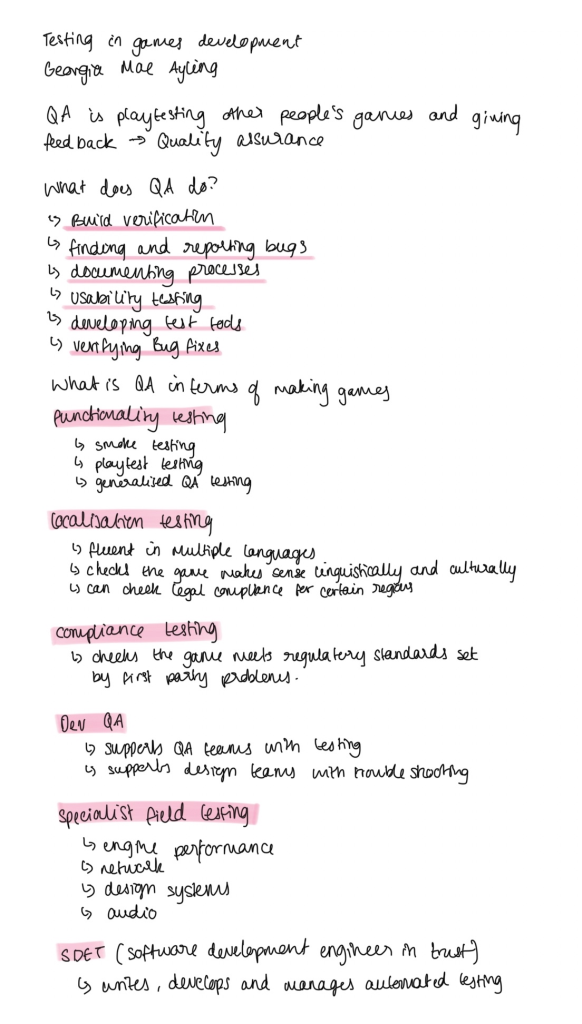 Testing in games development
Georgia Mae Ayling
QA is playtesting other people's games and giving
feedback → Quality assurance
What does QA do?
↳ Build verification
↳ finding and reporting bugs
↳ documenting processes
↳ usability testing
↳ developing test tools
↳ verifying Bug fixes
What is QA in terms of making games
functionality testing
↳ smoke testing
↳ playtest testing
↳ generalised QA testing
localisation testing
↳ fluent in multiple languages
↳ checks the game makes sense linguistically and culturally
↳ can check legal compliance for certain regions
compliance testing
↳ checks the game meets regulatory standards set
by first party problems.
Dev QA
↳ supports QA teams with testing
↳ supports design teams with trouble shooting
specialist field testing
↳ engine performance
↳ network
↳ design systems
↳ audio
SDET (software development engineer in trust)
↳ writes, develops and manages automated testing